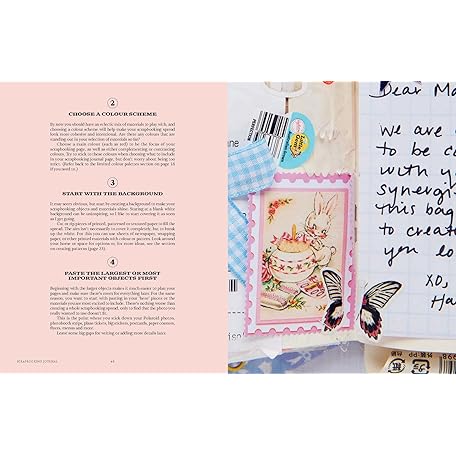 2
CHOOSE A COLOUR SCHEME
By now you should have an eclectic mix of materials to play with, and
choosing a colour scheme will help make your scrapbooking spread
look more cohesive and intentional. Are there any colours that are
standing out in your selection of materials so far?
Choose a main colour (such as red) to be the focus of your
scrapbooking page, as well as either complementing or contrasting
colours. Try to stick to these colours when choosing what to include
in your scrapbooking journal page, but don't worry about being too
strict. (Refer back to the limited colour palettes section on page 18
if you need to.)
3
START WITH THE BACKGROUND
It may seem obvious, but start by creating a background to make your
scrapbooking objects and materials shine. Staring at a blank white
background can be uninspiring, so I like to start covering it as soon
as I get going.
Cut or rip pieces of printed, patterned or textured paper to fill the
spread. The aim isn't necessarily to cover it completely, but to break
up the white. For this you can use sheets of newspaper, wrapping
paper, or other printed materials with colour or pattern. Look around
your home or space for options or, for more ideas, see the section
on creating patterns (page 23).
4
PASTE THE LARGEST OR MOST
IMPORTANT OBJECTS FIRST
Beginning with the larger objects makes it much easier to plan your
pages and make sure there's room for everything later. For the same
reason, you want to start with pasting in your 'hero' pieces or the
materials you are most excited to use. There's nothing worse than
creating a whole scrapbooking spread, only to find that the photo you
really wanted to use doesn't fit!
This is the point where you stick down your Polaroid photos,
photobooth strips, plane tickets, big stickers, postcards, paper cutouts,
fliers, menus and more.
Leave some big gaps for writing or adding more details later.
SCRAPBOOKING JOURNAL
Dear Ma
we are
to be c
with y
synergi
This bag
to create
you lo
XO,
Ha